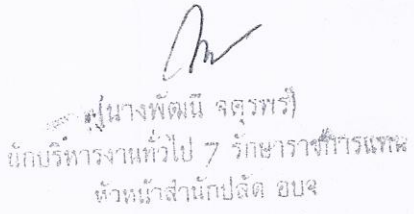 (นางพัฒนี จตุรพร)
นักบริหารงานทั่วไป 7 รักษาราชการแทน
หัวหน้าสำนักปลัด อบจ